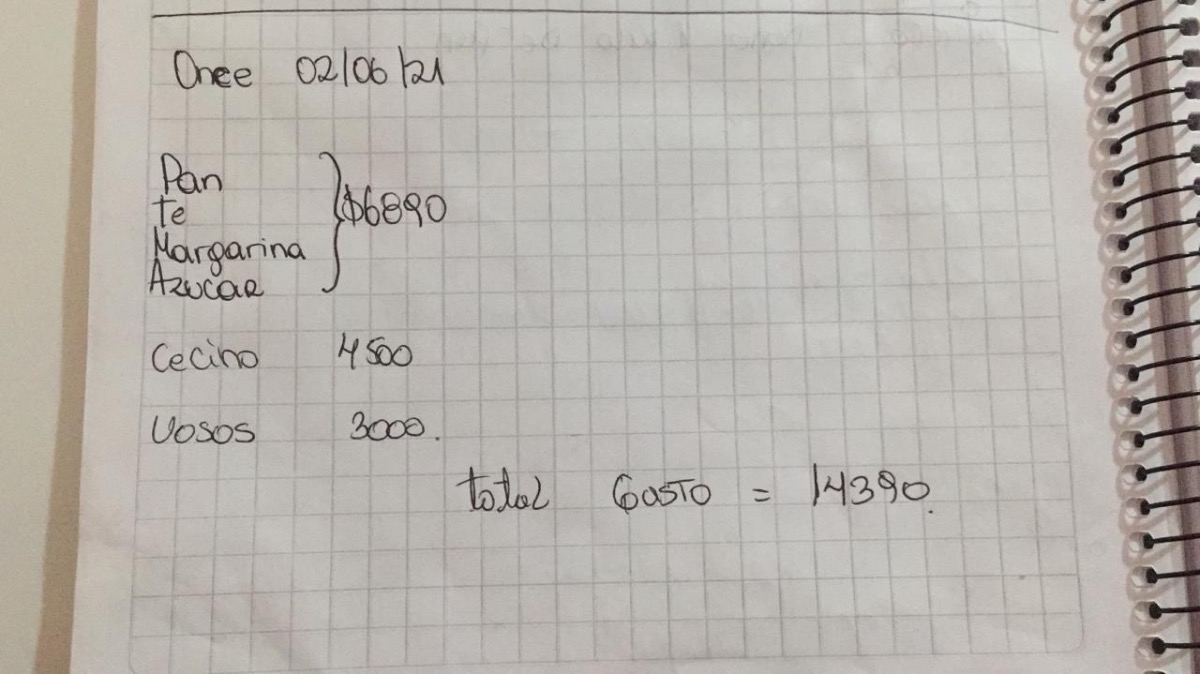 Once 02/06/21
Pan
te
Margarina
Azucar
} $6890
Cecina 4500
Vasos 3000.
total Gasto = 14390.